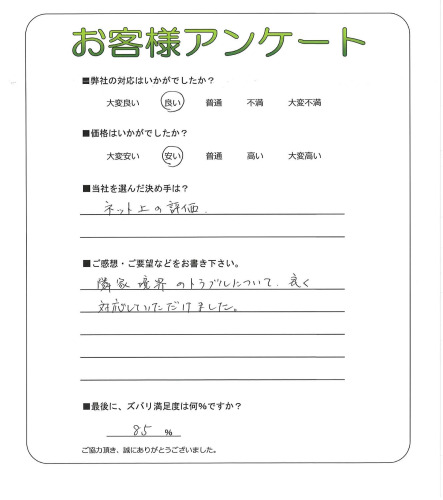 お客様アンケート
■弊社の対応はいかがでしたか？
大変良い 良い 普通 不満 大変不満
■価格はいかがでしたか？
大変安い 安い 普通 高い 大変高い
■当社を選んだ決め手は？
ネット上の評価.
■ご感想・ご要望などをお書き下さい。
隣家境界のトラブルについて、良く
対応していただけました。
■最後に、ズバリ満足度は何%ですか？
85 %
ご協力頂き、誠にありがとうございました。